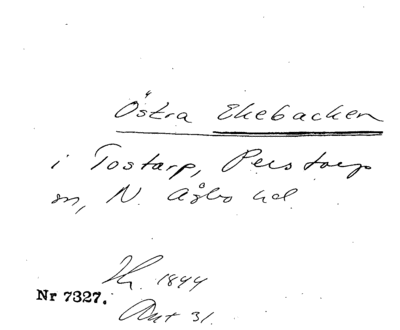 Östra Ekebacken
i Tostarp, Perstorps
sn, N. Åsbo hd
Hr. 1844
Nr 7327.
Akt 31.